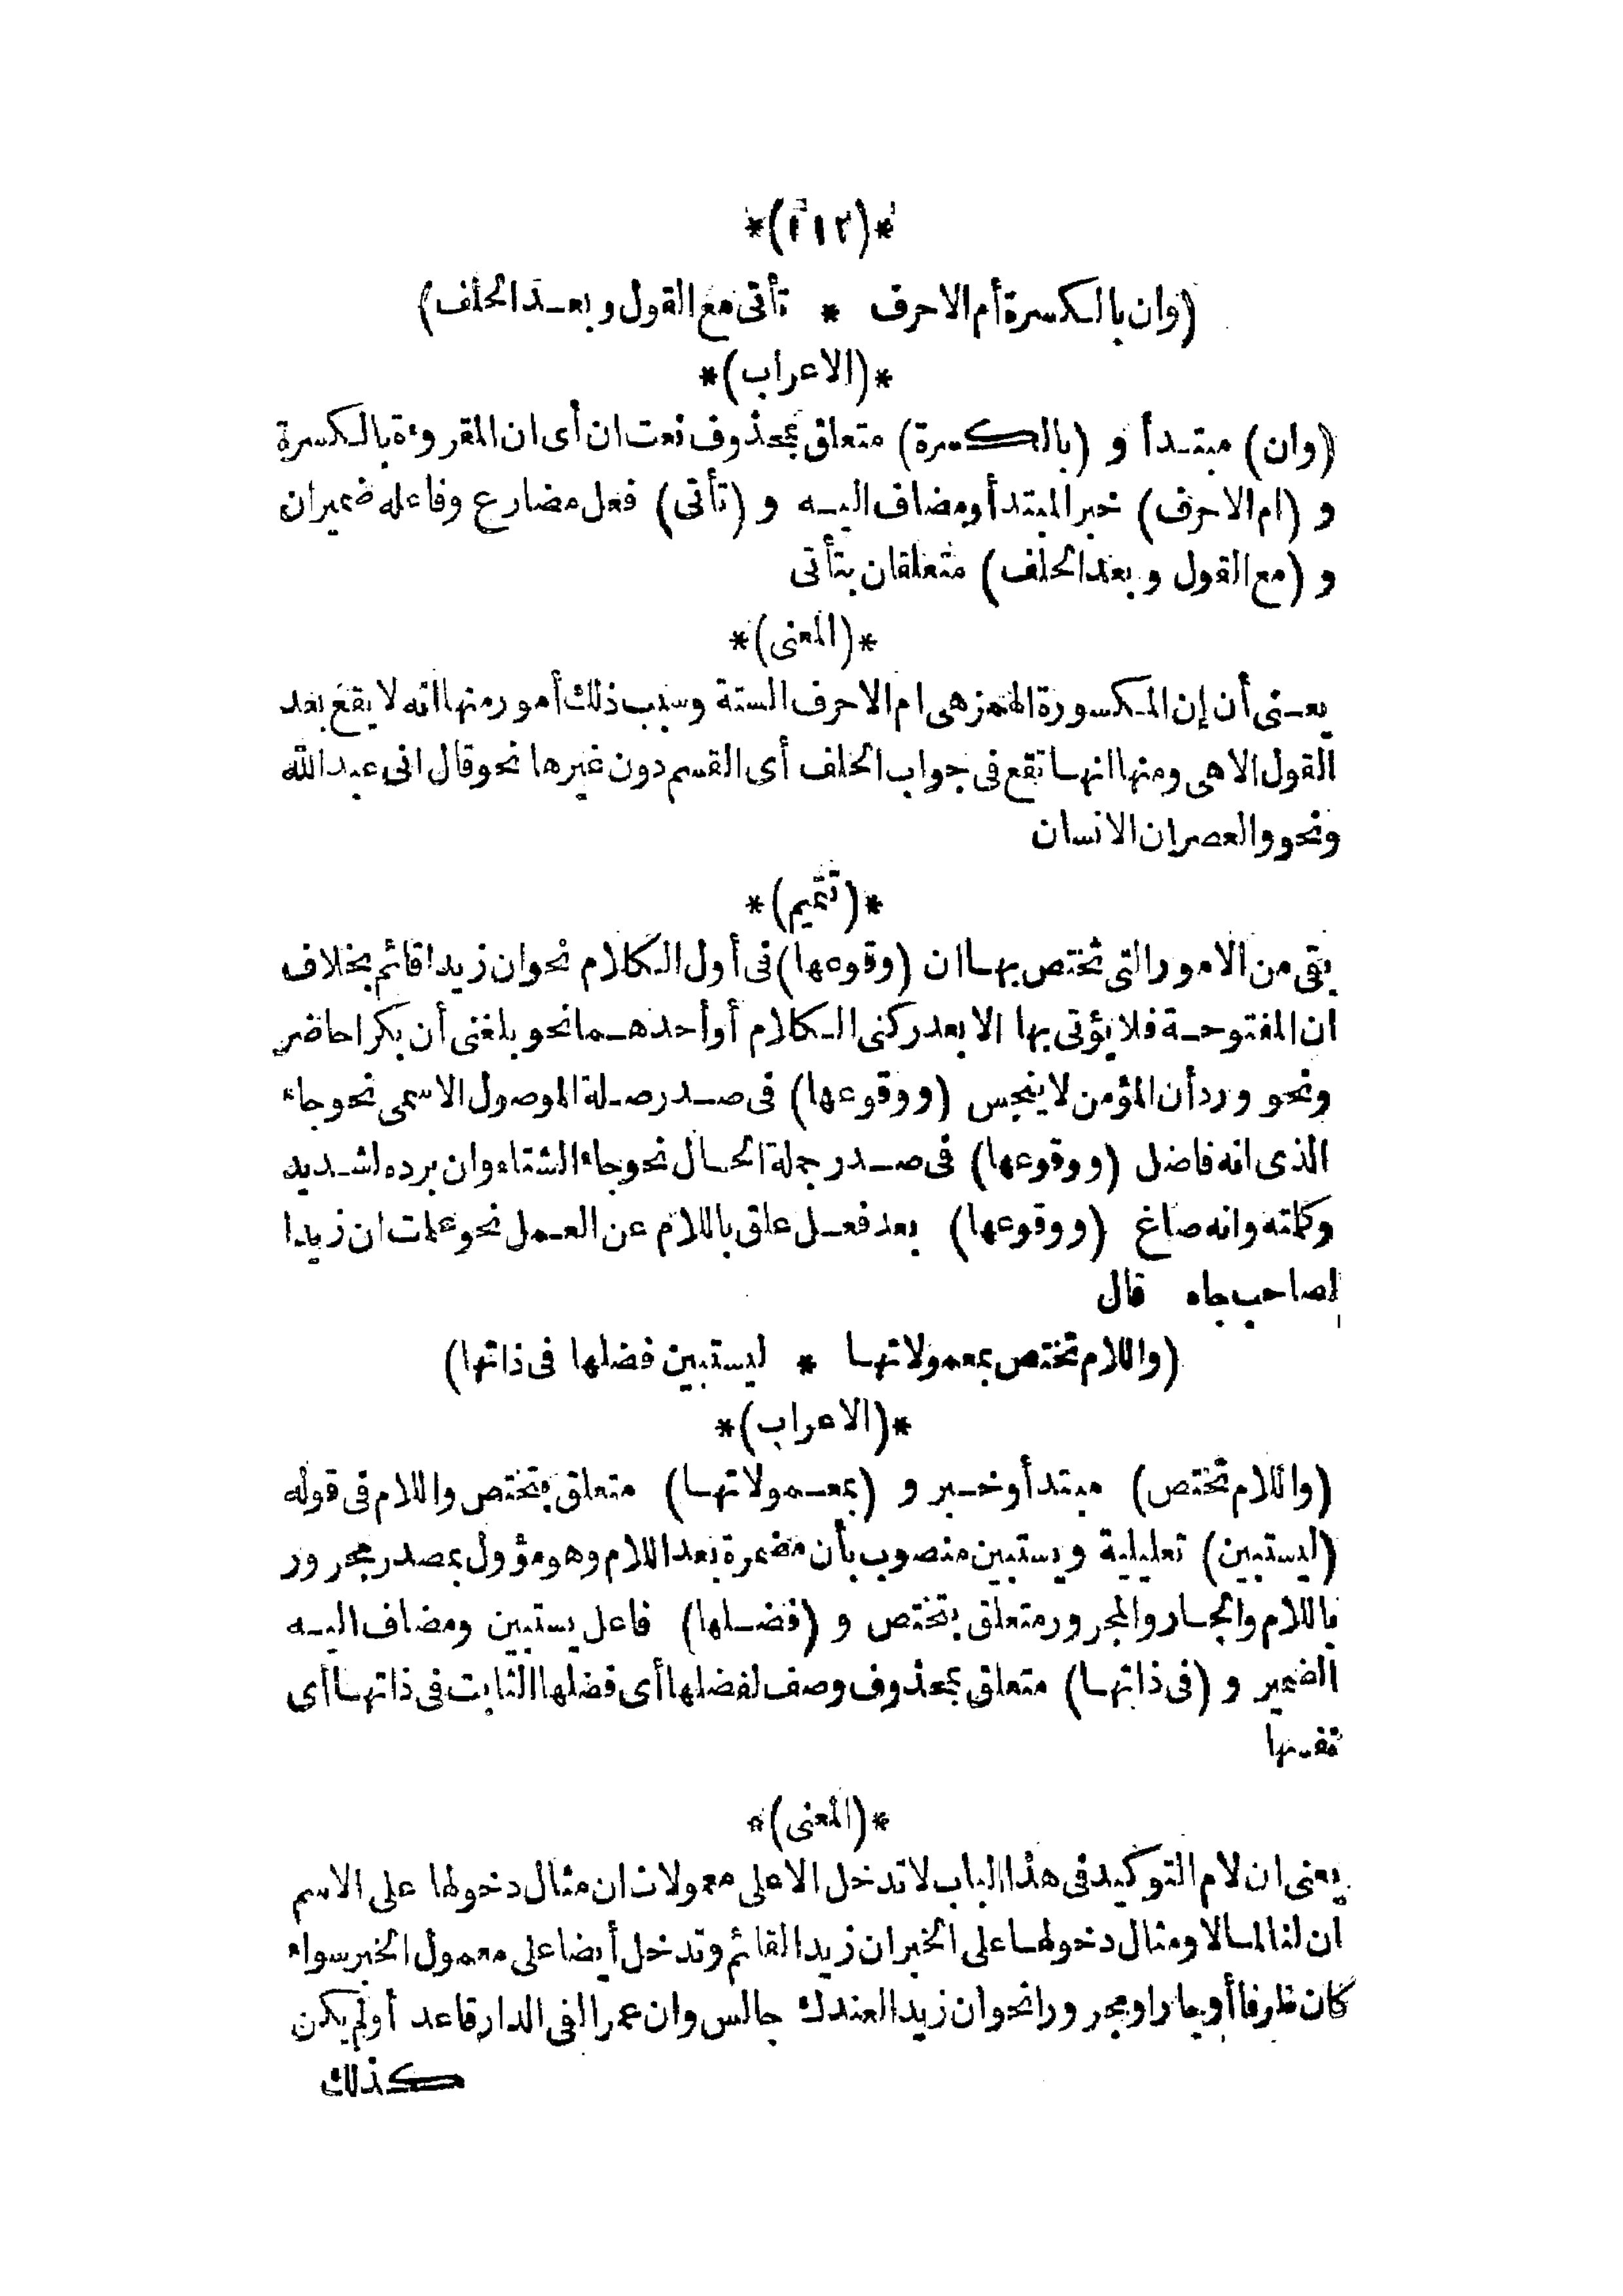 *(١١٢)*
(وان بالكسرة أم الاحرف * تأتى مع القول وبعد الحلف)
*(الاعراب)*
(وان) مبتدأ و (بالكسرة) متعلق بمحذوف نعت ان أى ان المقروءة بالكسرة
و (ام الاحرف) خبر المبتدأ ومضاف اليه و (تأتى) فعل مضارع وفاعله ضمير ان
و (مع القول وبعد الحلف) متعلقان بتأتى
*(المعنى)*
يعنى أن إن المكسورة الهمز هى ام الاحرف الستة وسبب ذلك أمور منها انه لا يقع بعد
القول الا هى ومنها انها تقع فى جواب الحلف أى القسم دون غيرها نحو قال انى عبد الله
ونحو والعصر ان الانسان
*(تتميم)*
بقى من الامور التى تختص بها ان (وقوعها) فى أول الكلام نحو ان زيدا قائم بخلاف
ان المفتوحة فلا يؤتى بها الا بعد ركنى الكلام أو أحدهما نحو بلغنى أن بكرا حاضر
ونحو ورد أن المؤمن لا ينجس (ووقوعها) فى صدر صلة الموصول الاسمى نحو جاء
الذى انه فاضل (ووقوعها) فى صدر جملة الحال نحو جاء الشتاء وان برده لشديد
وكلمته وانه صاغ (ووقوعها) بعد فعل علق باللام عن العمل نحو علمت ان زيدا
لصاحب جاه قال
(واللام تختص بمعمولاتها * ليستبين فضلها فى ذاتها)
*(الاعراب)*
(واللام تختص) مبتدأ وخبر و (بمعمولاتها) متعلق بتختص واللام فى قوله
(ليستبين) تعليلية ويستبين منصوب بأن مضمرة بعد اللام وهو مؤول بمصدر مجرور
باللام والجار والمجرور متعلق بتختص و (فضلها) فاعل يستبين ومضاف اليه
الضمير و (فى ذاتها) متعلق بمحذوف وصف لفضلها أى فضلها الثابت فى ذاتها أى
نفسها
*(المعنى)*
يعنى ان لام التوكيد فى هذا الباب لا تدخل الا على معمولات ان مثال دخولها على الاسم
ان لنا لمالا ومثال دخولها على الخبر ان زيدا لقائم وتدخل أيضا على معمول الخبر سواء
كان ظرفا أو جارا ومجرورا نحو ان زيدا لعندك جالس وان عمرا لفى الدار قاعد أو لم يكن
كذلك